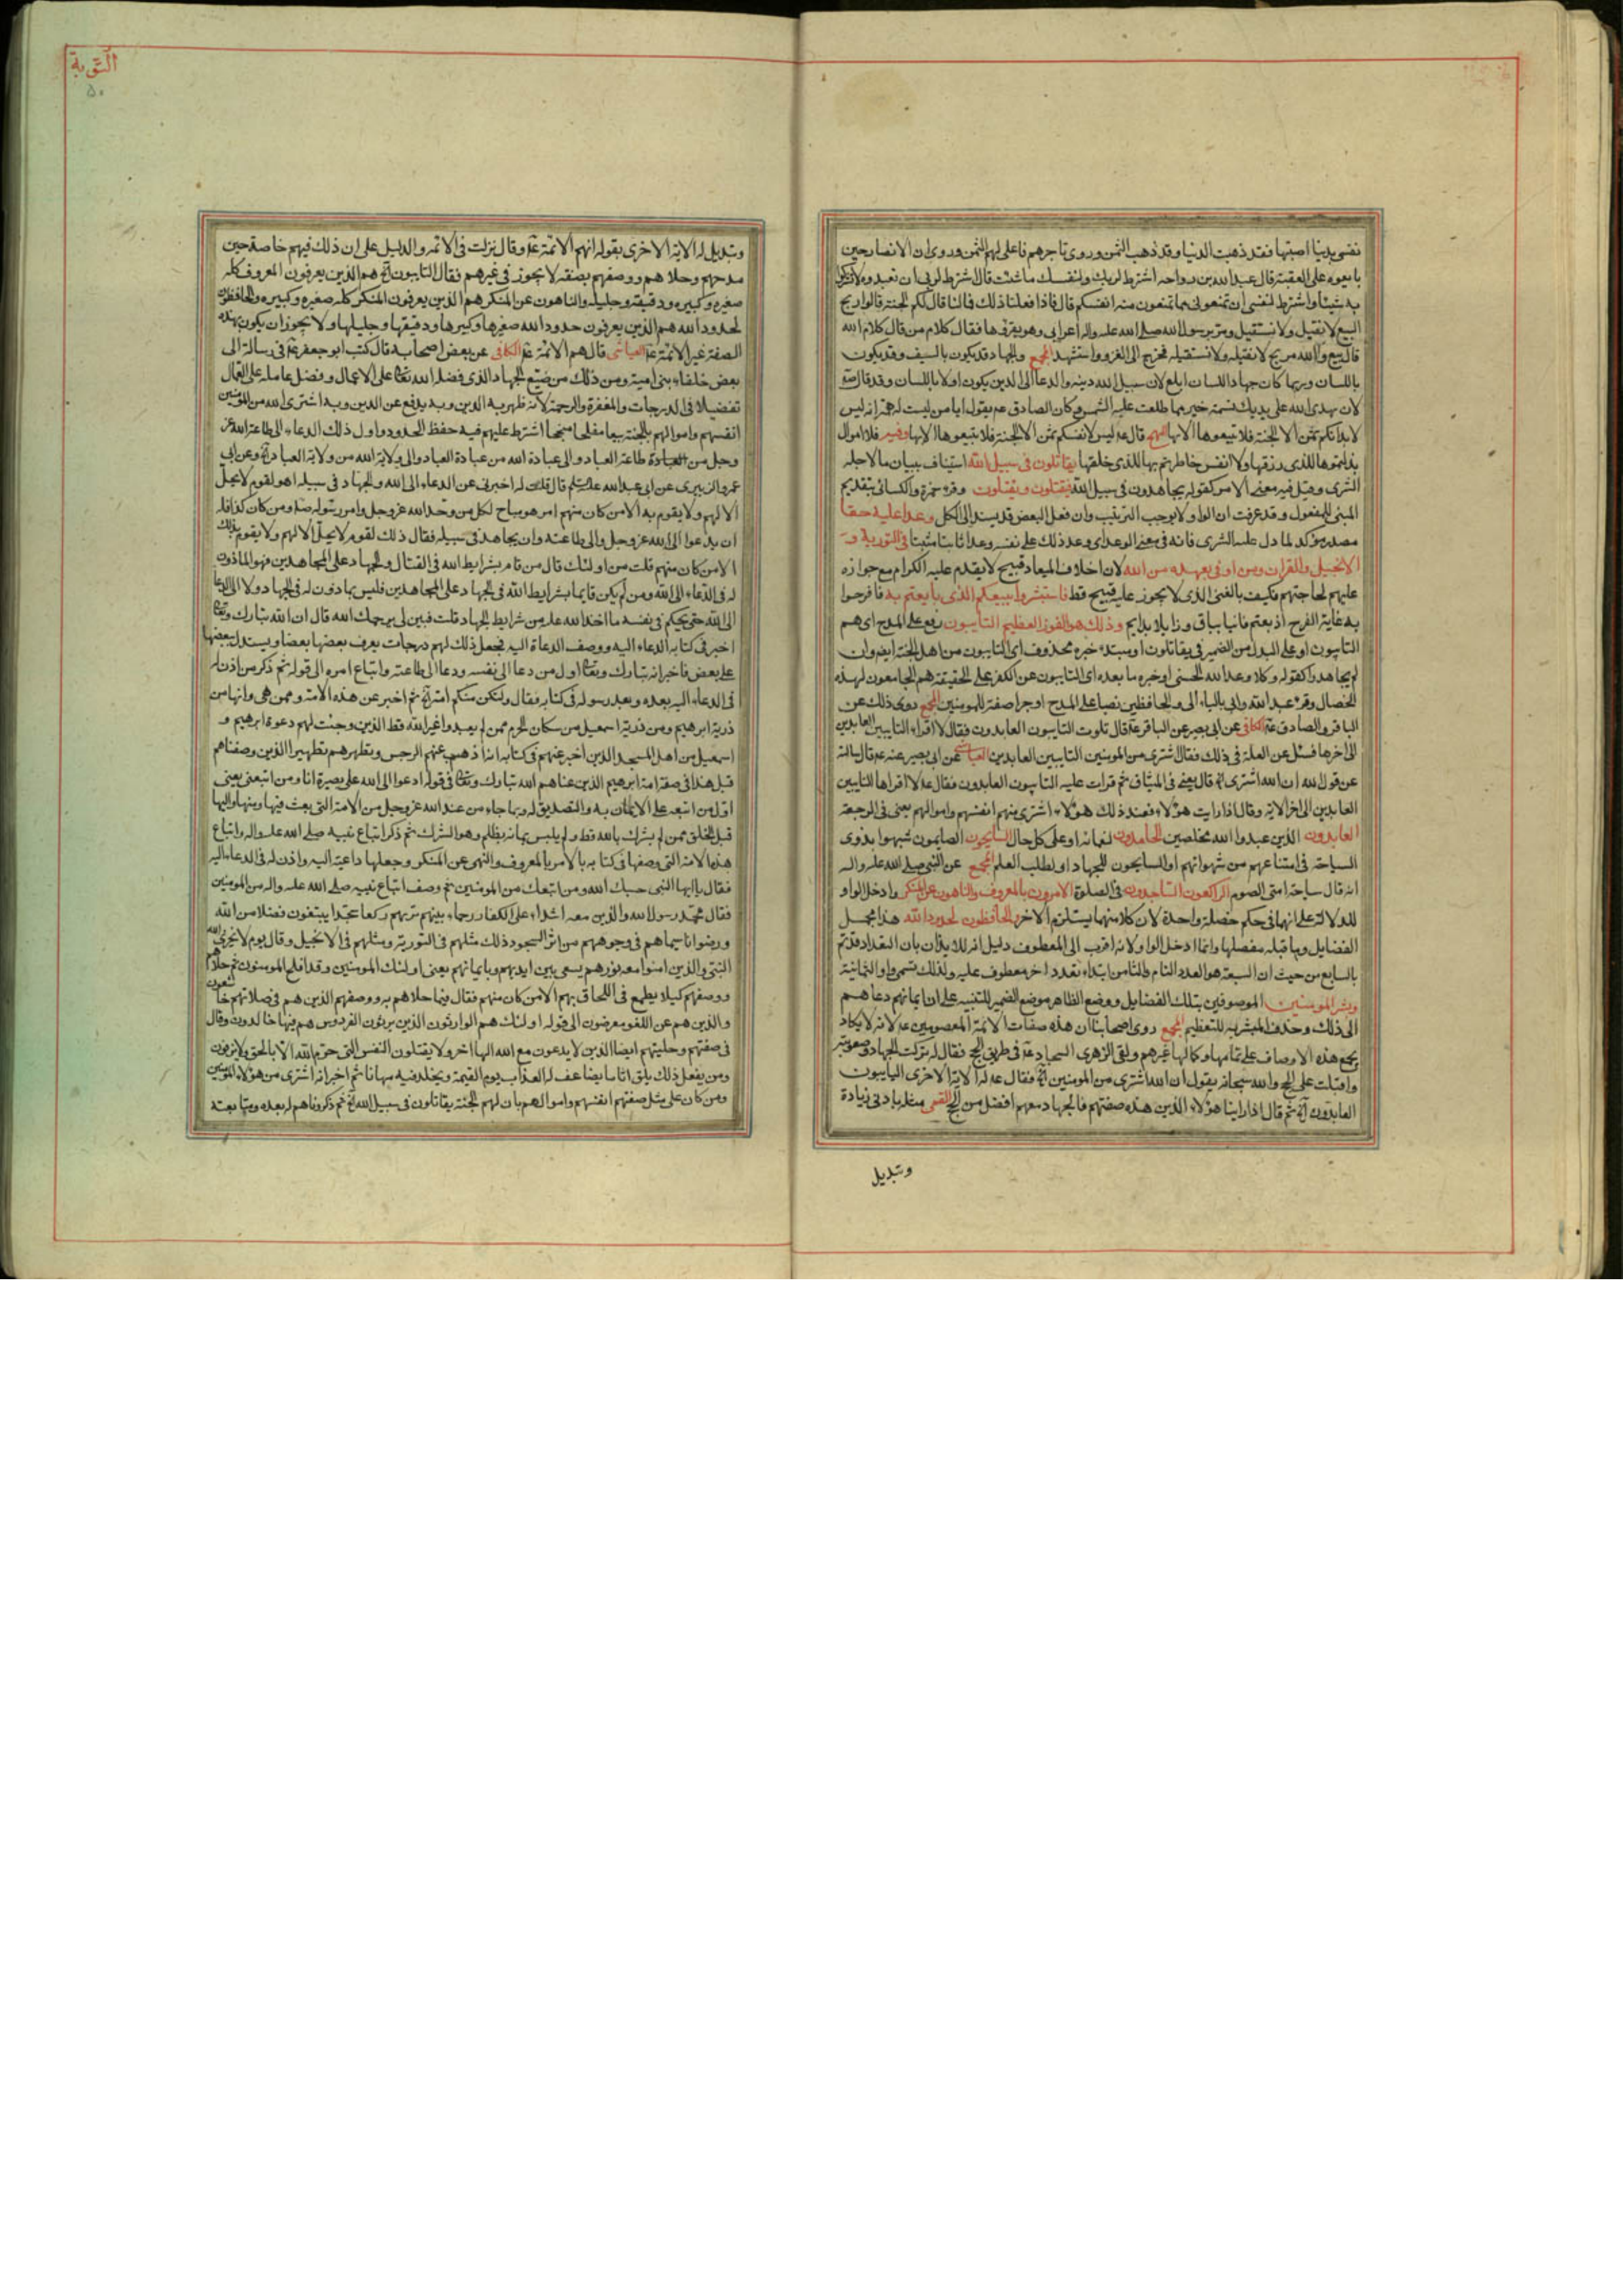 نفسى بدنيا اصبتها فقد ذهبت الدنيا وقد ذهب الثمن وروى تاجرهم فاعلى لهم الثمن وروى ان الانصار حين
بايعوه على العقبة قال عبد الله بن رواحه اشترط لربك ولنفسك ما شئت قال اشترط لربى ان تعبدوه ولا تشركوا
به شيئا واشترط لنفسى ان تمنعونى مما تمنعون منه انفسكم قال فاذا فعلنا ذلك فما لنا قال لكم الجنة قالوا ربح
البيع لا نقيل ولا نستقيل ومر برسول الله صلى الله عليه واله اعرابى وهو يقرؤها فقال كلام من قال كلام الله
قال بيع والله مربح لا نقيله ولا نستقيله فخرج الى الغزو واستشهد المجمع والجهاد قد يكون بالسيف وقد يكون
باللسان وربما كان جهاد اللسان ابلغ لان سبيل الله دينه والدعا الى الدين يكون اولا باللسان وقد قال
لان يهدى الله على يديك نسمة خير مما طلعت عليه الشمس وكان الصادق عم يقول ايا من ليست له همة انه ليس
لابدانكم ثمن الا الجنة فلا تبيعوها الا بها قال عم ليس لانفسكم ثمن الا الجنة فلا تبيعوها الا بها وفيه فلا اموال
بذلتموها للذى رزقها ولا انفس خاطرتم بها للذى خلقها يقاتلون فى سبيل الله استيناف ببيان ما لاجله
الشرى وقيل فيه معنى الامر كقوله يجاهدون فى سبيل الله فيقتلون ويقتلون وقرء حمزة والكسائى بتقديم
المبنى للمفعول وقد عرفت ان الواو لا يوجب الترتيب وان فعل البعض قد يسند الى الكل وعدا عليه حقا
مصدر مؤكد لما دل عليه الشرى فانه فى معنى الوعد اى وعد ذلك على نفسه وعدا ثابتا مثبتا فى التورية و
الانجيل والقران ومن اوفى بعهده من الله لان اخلاف الميعاد قبيح لا يقدم عليه الكرام مع جوازه
عليهم لحاجتهم فكيف بالغنى الذى لا يجوز عليه قبيح قط فاستبشروا ببيعكم الذى بايعتم به فافرحوا
به غاية الفرح اذ بعتم فانيا بباق وزايلا بدايم وذلك هو الفوز العظيم التايبون رفع على المدح اى هم
التايبون او على البدل من الضمير فى يقاتلون او مبتدء خبره محذوف اى التايبون من اهل الجنة ايضا وان
لم يجاهدوا كقوله وكلا وعد الله الحسنى او خبره ما بعده اى التايبون عن الكفر على الحقيقة هم الجامعون لهذه
الخصال وقرء عبد الله وابى بالياء الى والحافظين نصبا على المدح او جرا صفة للمؤمنين المجمع روى ذلك عن
الباقر والصادق عم الكافى عن ابى بصير عن الباقر عم قال تلوت التايبون العابدون فقال لا اقرء التايبين العابدين
الى اخرها فسئل عن العلة فى ذلك فقال اشترى من المومنين التايبين العابدين العياشى عن ابى بصير عنه عم قال سالته
عن قول الله ان الله اشترى الخ قال يعنى فى الميثاق ثم قرات عليه التايبون العابدون فقال عم لا اقراها التايبين
العابدين الى اخر الاية وقال اذا رايت هؤلاء فعند ذلك هؤلاء اشترى منهم انفسهم واموالهم يعنى فى الرجعة
العابدون الذين عبدوا الله مخلصين الحامدون لنعمائه او على كل حال السايحون الصايمون شبهوا بذوى
السياحة فى امتناعهم من شهواتهم او السايحون للجهاد او لطلب العلم المجمع عن النبى صلى الله عليه واله
انه قال سياحة امتى الصوم الراكعون الساجدون فى الصلوة الامرون بالمعروف والناهون عن المنكر وادخل الواو
للدلالة على انهما فى حكم خصلة واحدة لان كلا منهما يستلزم الاخر والحافظون لحدود الله هذا مجمل
الفضايل وما قبله مفصلها وانما ادخل الواو لانه اقرب الى المعطوف دليل انه لك يدان بان التعداد قد تم
بالسابع من حيث ان السبعة هو العدد التام والثامن ابتداء تعدد اخر معطوف عليه ولذلك تسمى واو الثمانية
وبشر المومنين الموصوفين بتلك الفضايل ووضع الظاهر موضع الضمير للتنبيه على ان ايمانهم دعاهم
الى ذلك وحذف المبشر به للتعظيم المجمع روى اصحابنا ان هذه صفات الائمة المعصومين عم لانه لا يكاد
يجمع هذه الاوصاف على تمامها وكمالها غيرهم ولقى الزهرى السجاد عم فى طريق الحج فقال له تركت الجهاد وصعوبته
واقبلت على الحج والله سبحانه يقول ان الله اشترى من المومنين الخ فقال عم له الاية الاخرى التايبون
العابدون الخ ثم قال اذا راينا هؤلاء الذين هذه صفتهم فالجهاد معهم افضل من الحج القمى مثله بادنى زيادة
وتبديل
التوبة
٥٠
وتبديل له الاية الاخرى بقوله انهم الائمة عم وقال نزلت فى الائمه والدليل على ان ذلك فيهم خاصة حين
مدحهم وحلاهم ووصفهم بصفة لا يجوز فى غيرهم فقال التايبون الخ هم الذين يعرفون المعروف كله
صغيره وكبيره ودقيقه وجليله والناهون عن المنكر هم الذين يعرفون المنكر كله صغيره وكبيره والحافظون
لحدود الله هم الذين يعرفون حدود الله صغيرها وكبيرها ودقيقها وجليلها ولا يجوز ان يكون بهذه
الصفة غير الائمة عم العياشى قال هم الائمة عم الكافى عن بعض اصحابه قال كتب ابو جعفر عم فى رسالة الى
بعض خلفاء بنى امية ومن ذلك من ضيع الجهاد الذى فضله الله تعا على الاعمال وفضل عامله على العمال
تفضيلا فى الدرجات والمغفرة والرحمة لانه ظهر به الدين وبه يدفع عن الدين وبه اشترى الله من المؤمنين
انفسهم واموالهم بالجنة بيعا مفلحا منجحا اشترط عليهم فيه حفظ الحدود واول ذلك الدعاء الى طاعة الله عز
وجل من طاعة العباد والى عبادة الله من عبادة العباد والى ولاية الله من ولاية العباد الخ وعن ابى
عمرو الزبيرى عن ابى عبد الله عليه السلم قال قلت له اخبرنى عن الدعاء الى الله والجهاد فى سبيله اهو لقوم لا يحل
الا لهم ولا يقوم به الا من كان منهم ام هو مباح لكل من وحد الله عز وجل وامن برسوله صلع ومن كان كذا فله
ان يدعوا الى الله عز وجل والى طاعته وان يجاهد فى سبيله فقال ذلك لقوم لا يحل الا لهم ولا يقوم بذلك
الا من كان منهم قلت من اولئك قال من قام بشرايط الله فى القتال والجهاد على المجاهدين فهو الماذون
له فى الدعاء الى الله ومن لم يكن قايما بشرايط الله فى الجهاد على المجاهدين فليس بماذون له فى الجهاد ولا الدعا
الى الله حتى يحكم فى نفسه ما اخذ الله عليه من شرايط الجهاد قلت فبين لى يرحمك الله قال ان الله تبارك وتعا
اخبر فى كتابه الدعاء اليه ووصف الدعاة اليه فجعل ذلك لهم درجات يعرف بعضها بعضا ويستدل ببعضها
على بعض فاخبر انه تبارك وتعا اول من دعا الى نفسه ودعا الى طاعته واتباع امره الى قوله ثم ذكر من اذن له
فى الدعاء اليه بعده وبعد رسوله فى كتابه فقال ولتكن منكم امة الخ ثم اخبر عن هذه الامة وممن هى وانها من
ذرية ابرهيم ومن ذرية اسمعيل من سكان الحرم ممن لم يعبدوا غير الله قط الذين وجبت لهم دعوة ابرهيم و
اسمعيل من اهل المسجد الذين اخبر عنهم فى كتابه انه اذهب عنهم الرجس وتطهرهم تطهيرا الذين وصفناهم
قبل هذا فى صفة امة ابرهيم الذين عناهم الله تبارك وتعا فى قوله ادعوا الى الله على بصيرة انا ومن اتبعنى يعنى
اول من اتبعه على الايمان به والتصديق له وبما جاء من عند الله عز وجل من الامة التى بعث فيها ومنها واليها
قبل الخلق ممن لم يشرك بالله قط ولم يلبس ايمانه بظلم وهو الشرك ثم ذكر اتباع نبيه صلى الله عليه واله واتباع
هذه الامة التى وصفها فى كتابه بالامر بالمعروف والنهى عن المنكر وجعلها داعية اليه واذن له فى الدعاء اليه
فقال يا ايها النبى حسبك الله ومن اتبعك من المومنين ثم وصف اتباع نبيه صلى الله عليه واله من المومنين
فقال محمد رسول الله والذين معه اشداء على الكفار رحماء بينهم تريهم ركعا سجدا يبتغون فضلا من الله
ورضوانا سيماهم فى وجوههم من اثر السجود ذلك مثلهم فى التورية ومثلهم فى الانجيل وقال يوم لا يخزى الله
النبى والذين امنوا معه نورهم يسعى بين ايديهم وبايمانهم يعنى اولئك المومنين وقد افلح المومنون ثم حلاهم
ووصفهم كيلا يطمع فى اللحاق بهم الا من كان منهم فقال فيما حلاهم به ووصفهم الذين هم فى صلاتهم خاشعون
والذين هم عن اللغو معرضون الى قوله اولئك هم الوارثون الذين يرثون الفردوس هم فيها خالدون وقال
فى صفتهم وحليتهم ايضا الذين لا يدعون مع الله الها اخر ولا يقتلون النفس التى حرم الله الا بالحق ولا يزنون
ومن يفعل ذلك يلق اثاما يضاعف له العذاب يوم القيمة ويخلد فيه مهانا ثم اخبر انه اشترى من هؤلاء المؤمنين
ومن كان على مثل صفتهم انفسهم واموالهم بان لهم الجنة يقاتلون فى سبيل الله الخ ثم ذكر وفاهم له بعهده ومبايعته